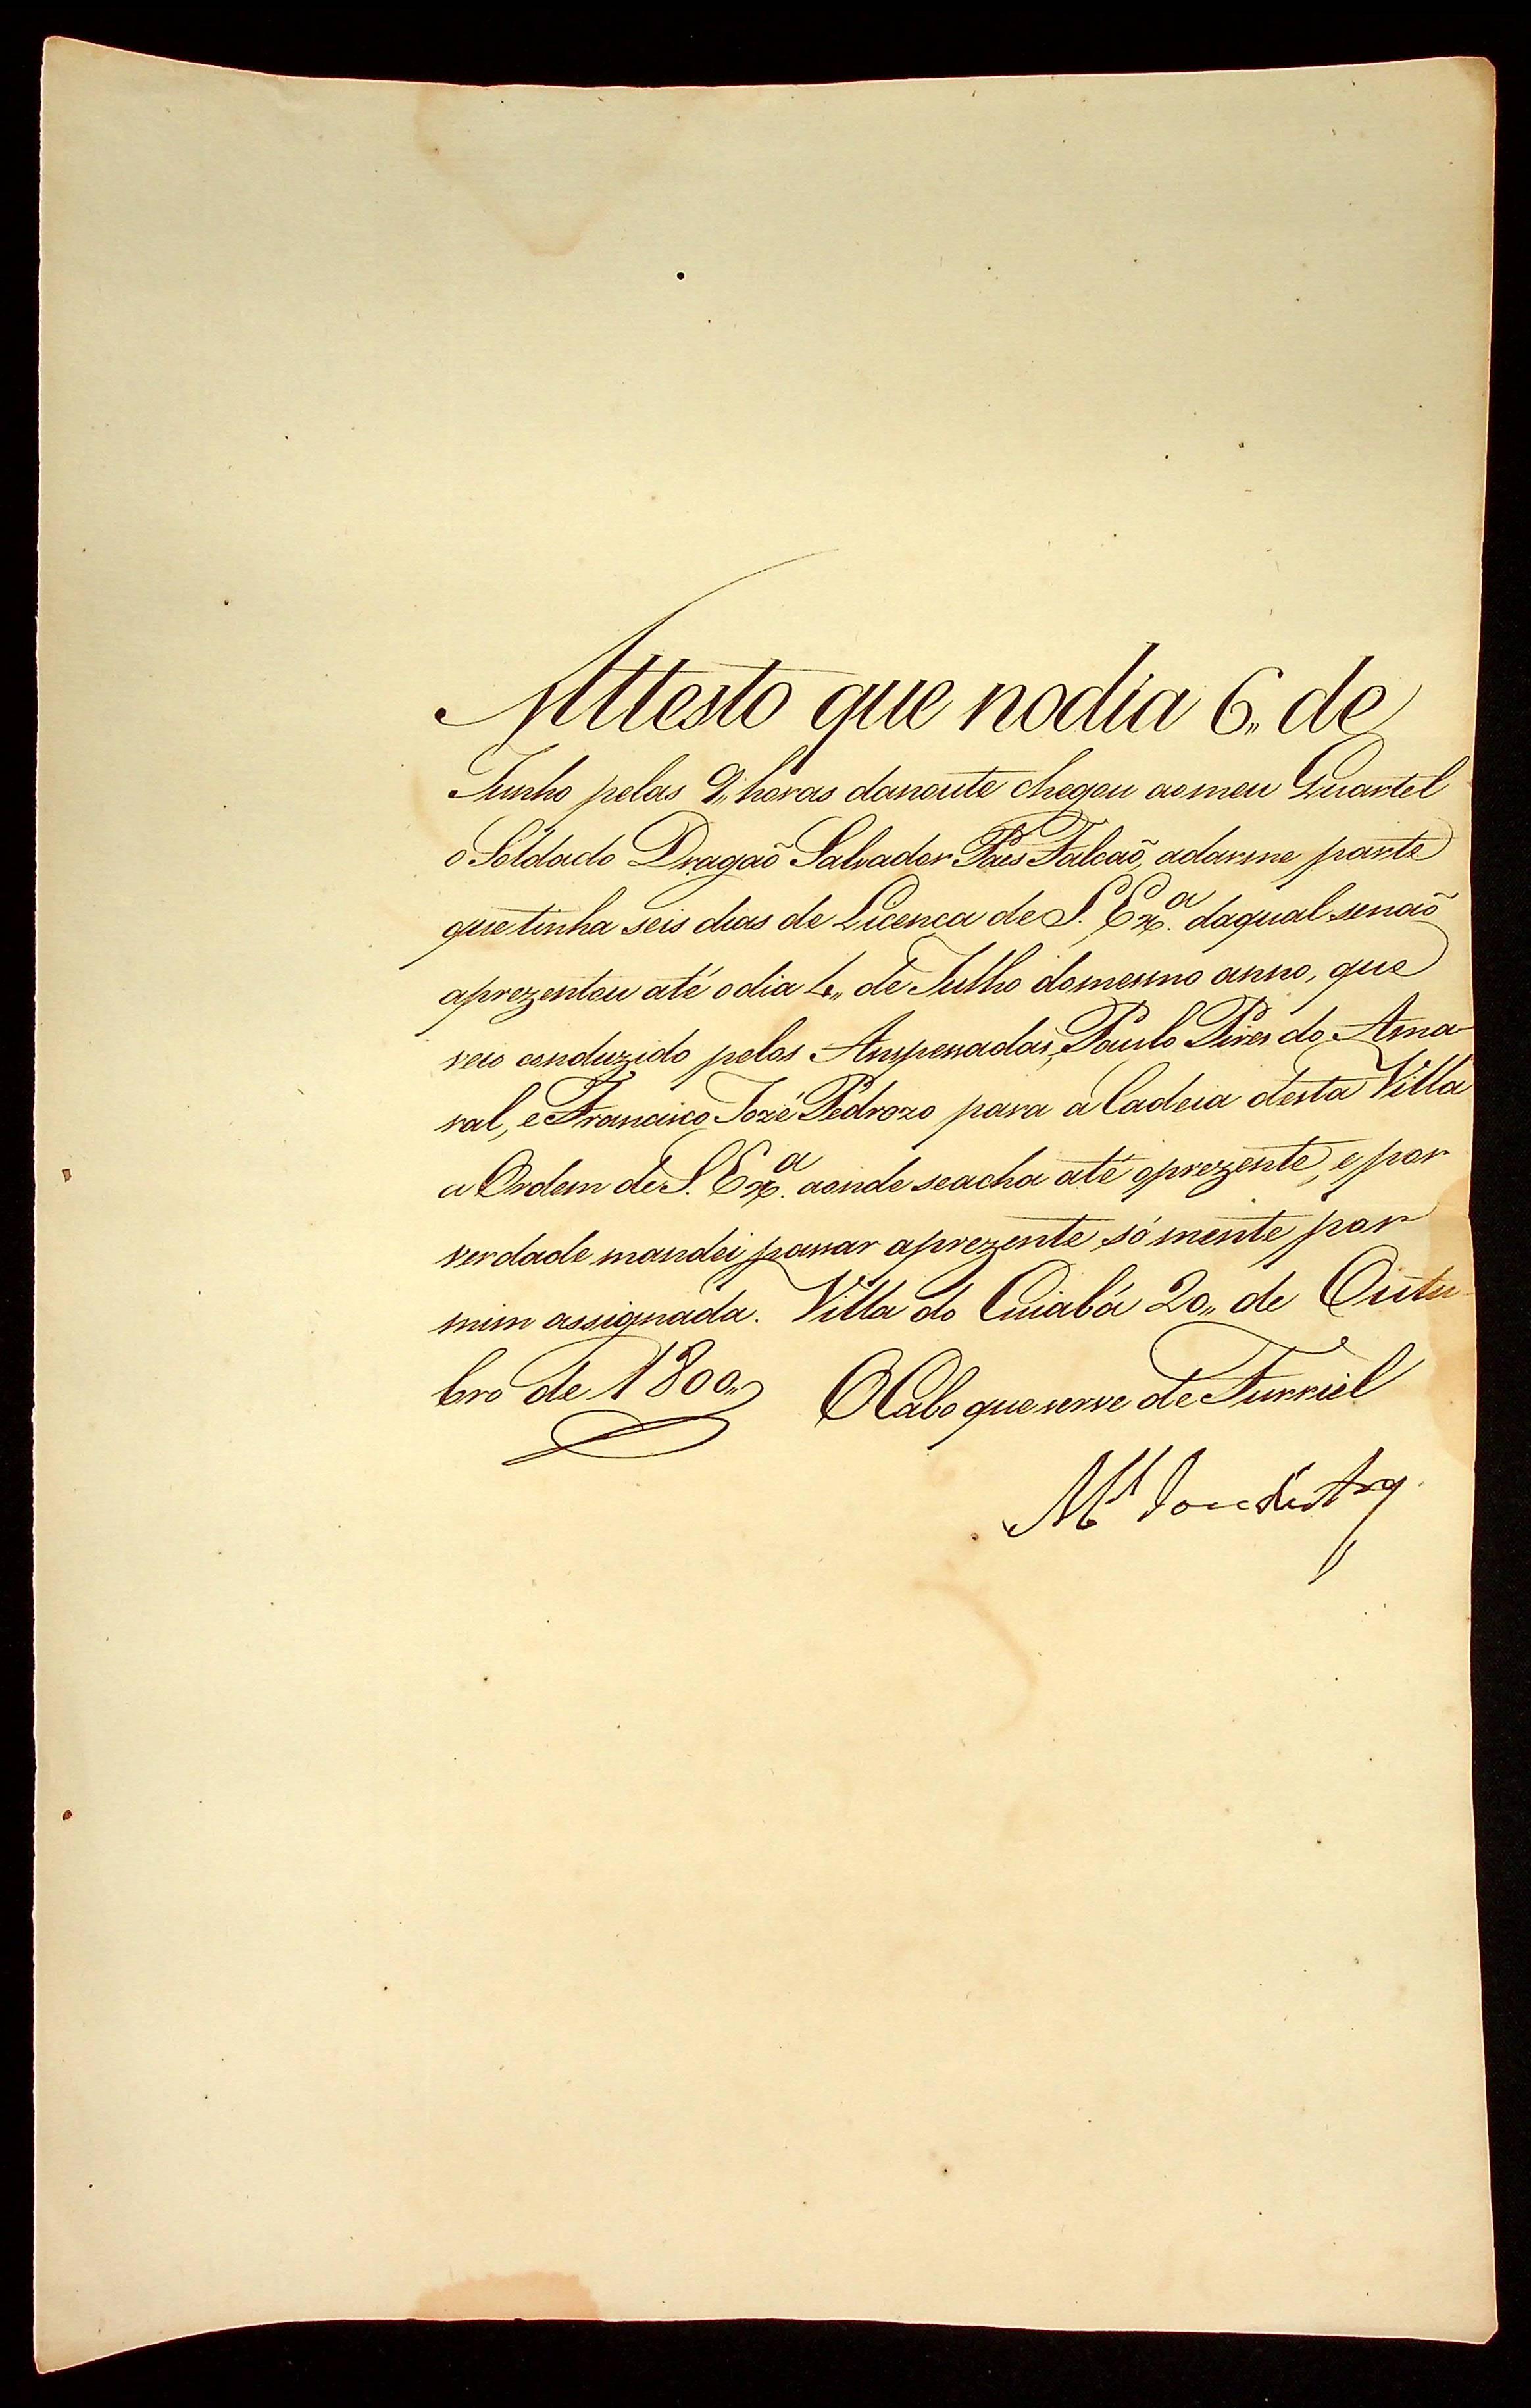 Attesto que nodia 6,, de
Junho pelas 9,, horas danoute chegou aomeu Quartel
o Soldado Dragaõ Salvador Paes Falcaõ, adarme parte
quetinha seis dias de Licença de S. Ex.ª daqual senaõ
aprezentou até odia 4,, de Julho domesmo anno, que
veio conduzido pelos Anspessadas, Paulo Pires do Ama-
ral, e Francisco Jozé Pedrozo para a Cadeia desta Villa
a Ordem de S. Ex.ª aonde seacha até oprezente, e por
verdade mandei passar aprezente só mente por
mim assignada. Villa do Cuiabá 20,, de Outu-
bro de 1800,,
O Cabo que serve de Furriel